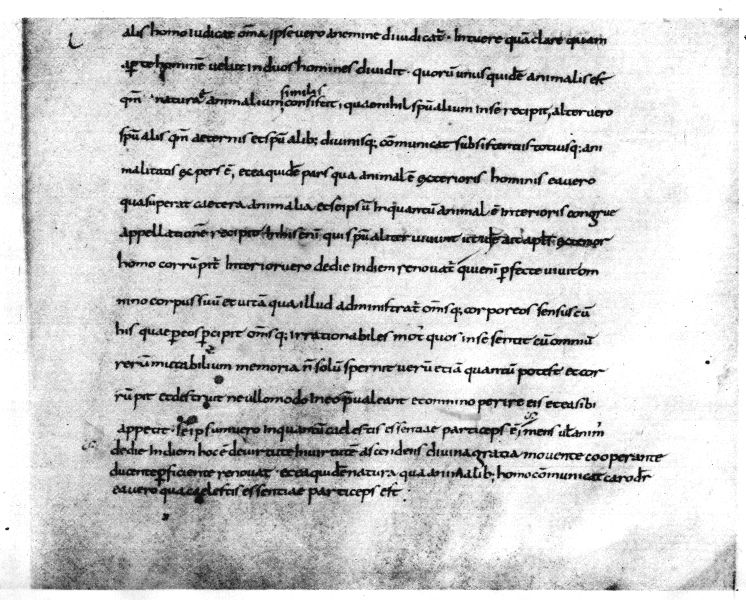 alis homo iudicat om̄a, ipse vero a nemine diiudicat᷑. Intuere quā clare quam
aꝑte hominē velut in duos homines dividit. quorū unus quidē animalis est
qm̄ naturae animalium similis consistit, quae nihil spū alium in se recipit, alter vero
spū alis qm̄ aeternis et spū alib; divinisq; cōmunicat subsistentiis totiusq; ani
malitatis expers ē, et ea quidē pars qua animal ē exterioris hominis ea vero
qua superat caetera animalia et se ipsū inquantū animal ē interioris congrue
appellationē recipit. In his enī qui spū aliter vivunt ut aplš exterior
homo corrūpit᷑ Interior vero de die in diem renovat᷑ qui enī ꝑfecte vivit om
nino corpus suū et vitā qua illud administrat᷑ om̄sq; corporeos sensus cū
his quae ꝑ eos ꝑcipit om̄sq; irrationabiles mot' quos in se sentit cū omniū
rerū mutabilium memoria n̄ solū spernit verū etiā quantū potest et cor
rūpit et destruit ne ullo modo in eo p̄valeant et omnino perire eis et ea sibi
appetit. se ipsum vero inquantū caelestis essentiae particeps ē
de die in diem hoc ē de virtute in virtutē ascendens divina gratia movente cooperante
ducente ꝑficiente renovat. et ea quidē natura qua animalib; homo cōmunicat caro dr̄
ea vero qua caelestis essentiae particeps est